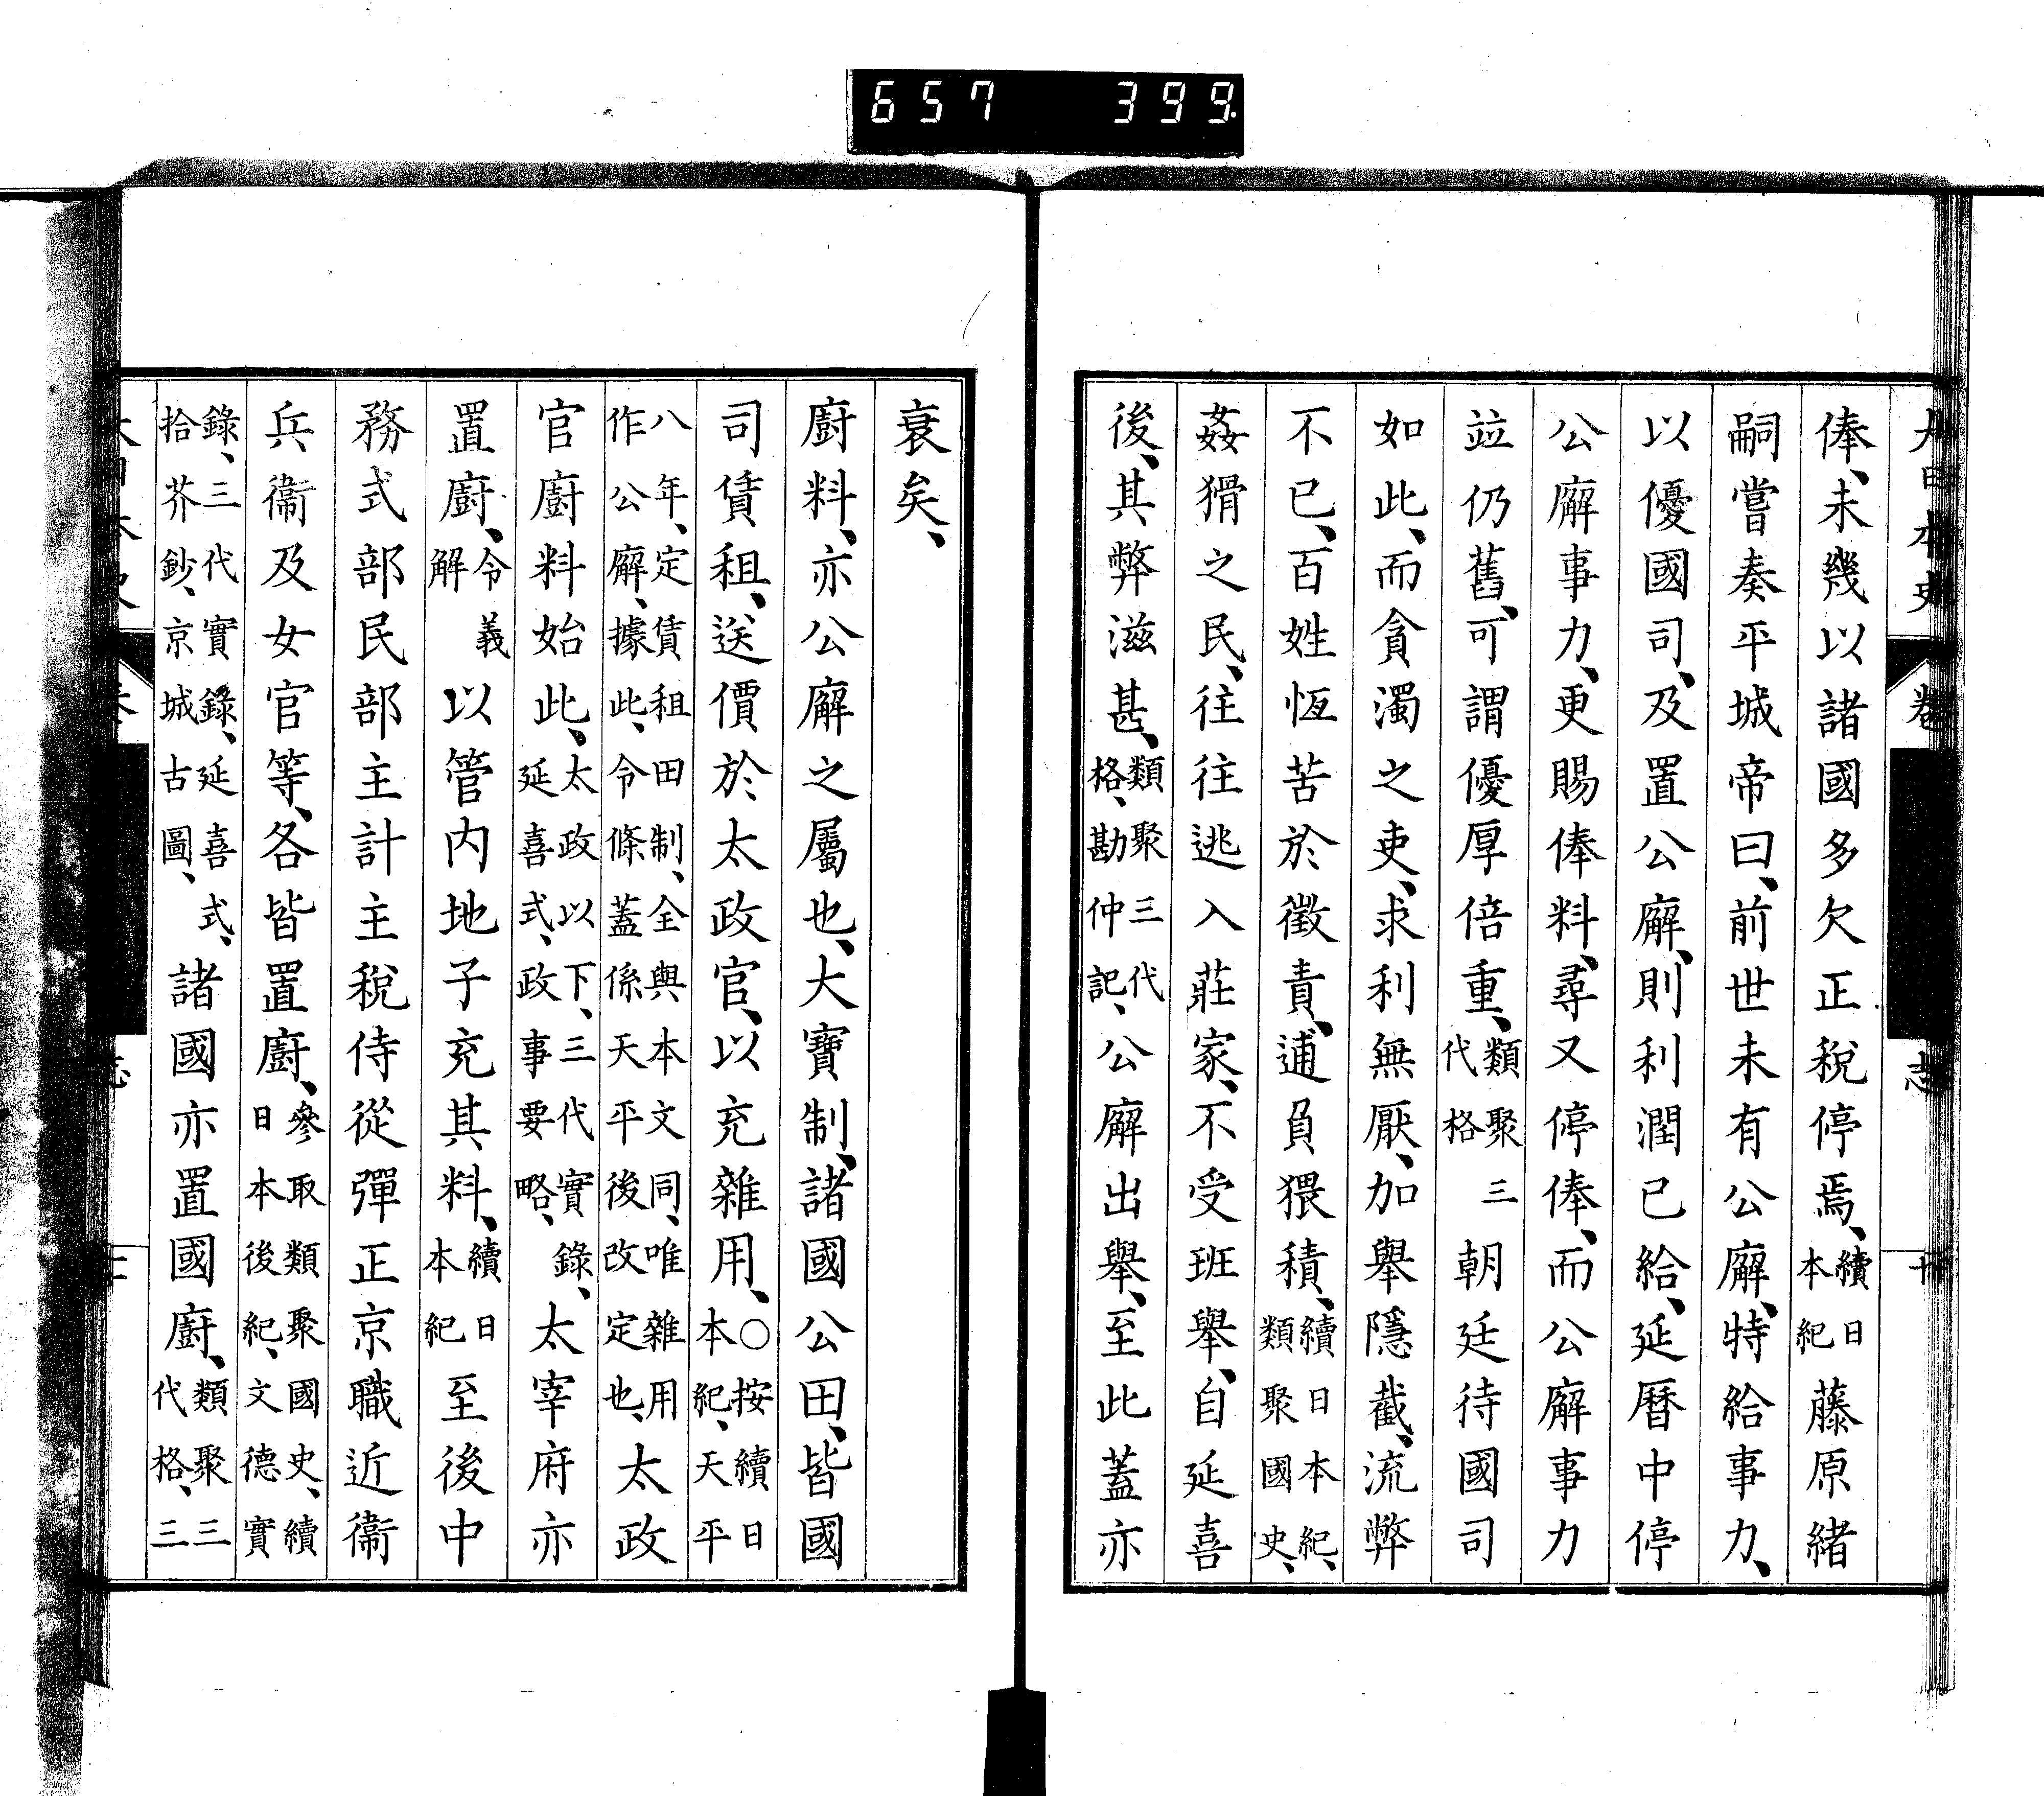 657 399
大日本史 卷 志
俸、未幾以諸國多欠正稅停焉、續日本紀藤原緒
嗣嘗奏平城帝曰、前世未有公廨、特給事力、
以優國司、及置公廨、則利潤已給、延曆中停
公廨事力、更賜俸料、尋又停俸、而公廨事力
竝仍舊、可謂優厚倍重、類聚三代格朝廷待國司
如此、而貪濁之吏、求利無厭、加舉隱截、流弊
不已、百姓恆苦於徵責、逋負猥積、續日本紀、類聚國史、
姦猾之民、往往逃入莊家、不受班舉、自延喜
後、其弊滋甚、類聚三代格、勘仲記、公廨出舉、至此蓋亦
衰矣、
廚料、亦公廨之屬也、大寶制、諸國公田、皆國
司賃租、送價於太政官、以充雜用、○按續日本紀、天平
八年、定賃租田制、全與本文同、唯雜用作公廨、據此、令條蓋係天平後改定也、太政
官廚料始此、太政以下、三代實錄、延喜式、政事要略、太宰府亦
置廚、令義解以管內地子充其料、續日本紀至後中
務式部民部主計主稅侍從彈正京職近衞
兵衞及女官等、各皆置廚、參取類聚國史、續日本後紀、文德實
錄、三代實錄、延喜式、拾芥鈔、京城古圖、諸國亦置國廚、類聚三代格、三